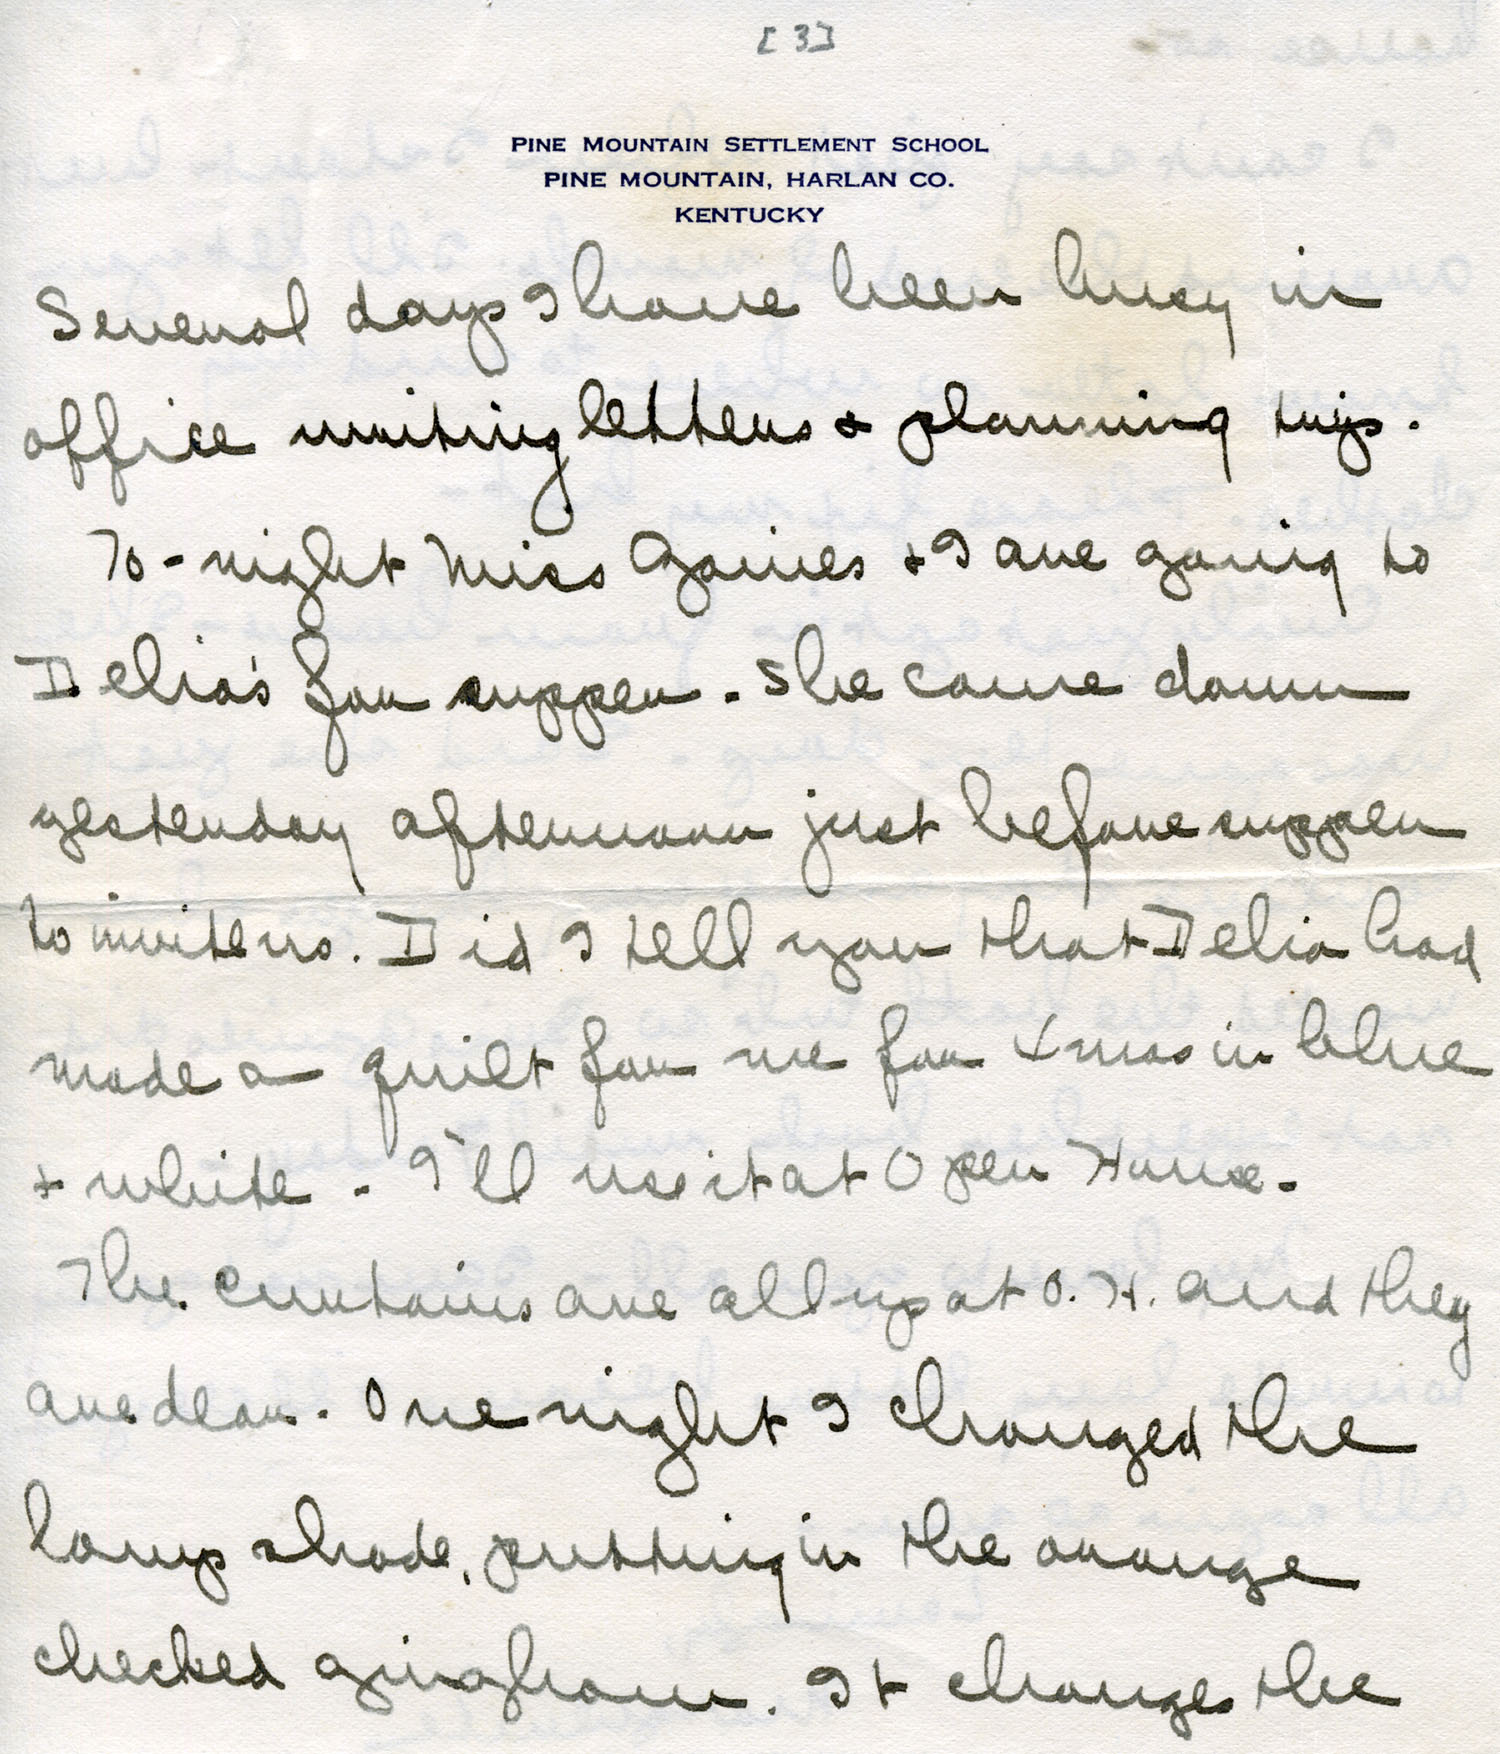 [3]
PINE MOUNTAIN SETTLEMENT SCHOOL
PINE MOUNTAIN, HARLAN CO.
KENTUCKY
Several days I have been busy in
office writing letters & planning trips.
To-night Miss Gaines & I are going to
Delia's for supper. She came down
yesterday afternoon just before supper
to invite us. Did I tell you that Delia had
made a quilt for me for Xmas in blue
& white. I'll use it at Open House.
The curtains are all up at O.H. and they
are dear. One night I changed the
lamp shade, putting in the orange
checked gingham. It changes the